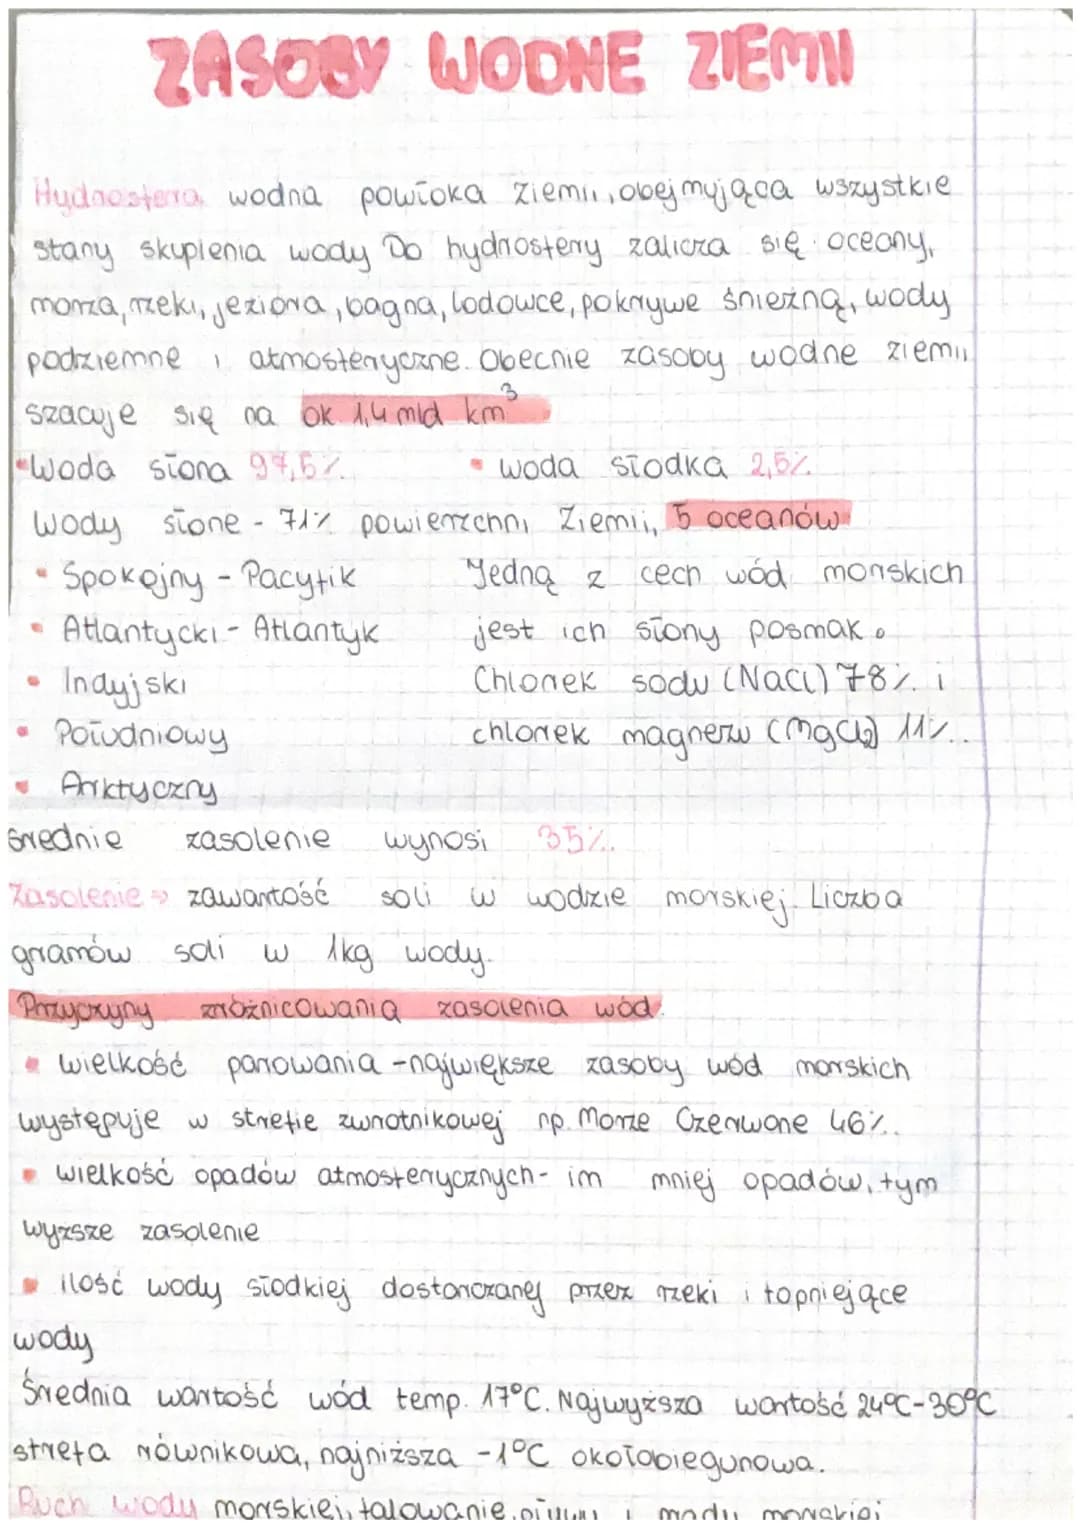 ZASOBY WODNE ZIEMII
Hydrosfera wodna powłoka ziemii, obejmująca wszystkie
stany skupienia wody Do hydrosfery zalicza się oceany,
morza, rzeki, jeziora, bagna, lodowce, pokrywe śnieżną, wody
podziemne i atmosferyczne. Obecnie zasoby wodne ziemii
szacuje się na ok 1,4 mld km³
• Woda słona 97,5% • woda słodka 2,5%
Wody słone - 71% powierzchni Ziemii, 5 oceanów
• Spokojny - Pacyfik Jedną z cech wód morskich
• Atlantycki - Atlantyk jest ich słony posmak.
• Indyjski Chlorek sodu (NaCl) 78% i
• Południowy chlorek magnezu (MgCl2) 11%.
• Arktyczny
Średnie zasolenie wynosi 35%.
Zasolenie → zawartość soli w wodzie morskiej. Liczba
gramów soli w 1kg wody.
Przyczyny zróżnicowania zasolenia wód.
• wielkość parowania - największe zasoby wód morskich
występuje w strefie zwrotnikowej np. Morze Czerwone 46%.
• wielkość opadów atmosferycznych - im mniej opadów, tym
wyższe zasolenie
• ilość wody słodkiej dostarczanej przez rzeki i topniejące
wody
Średnia wartość wód temp. 17°C. Najwyższa wartość 24°C-30°C
strefa równikowa, najniższa -1°C okołobiegunowa.
Ruch wody morskiej, falowanie, pływy i prądy morskiej